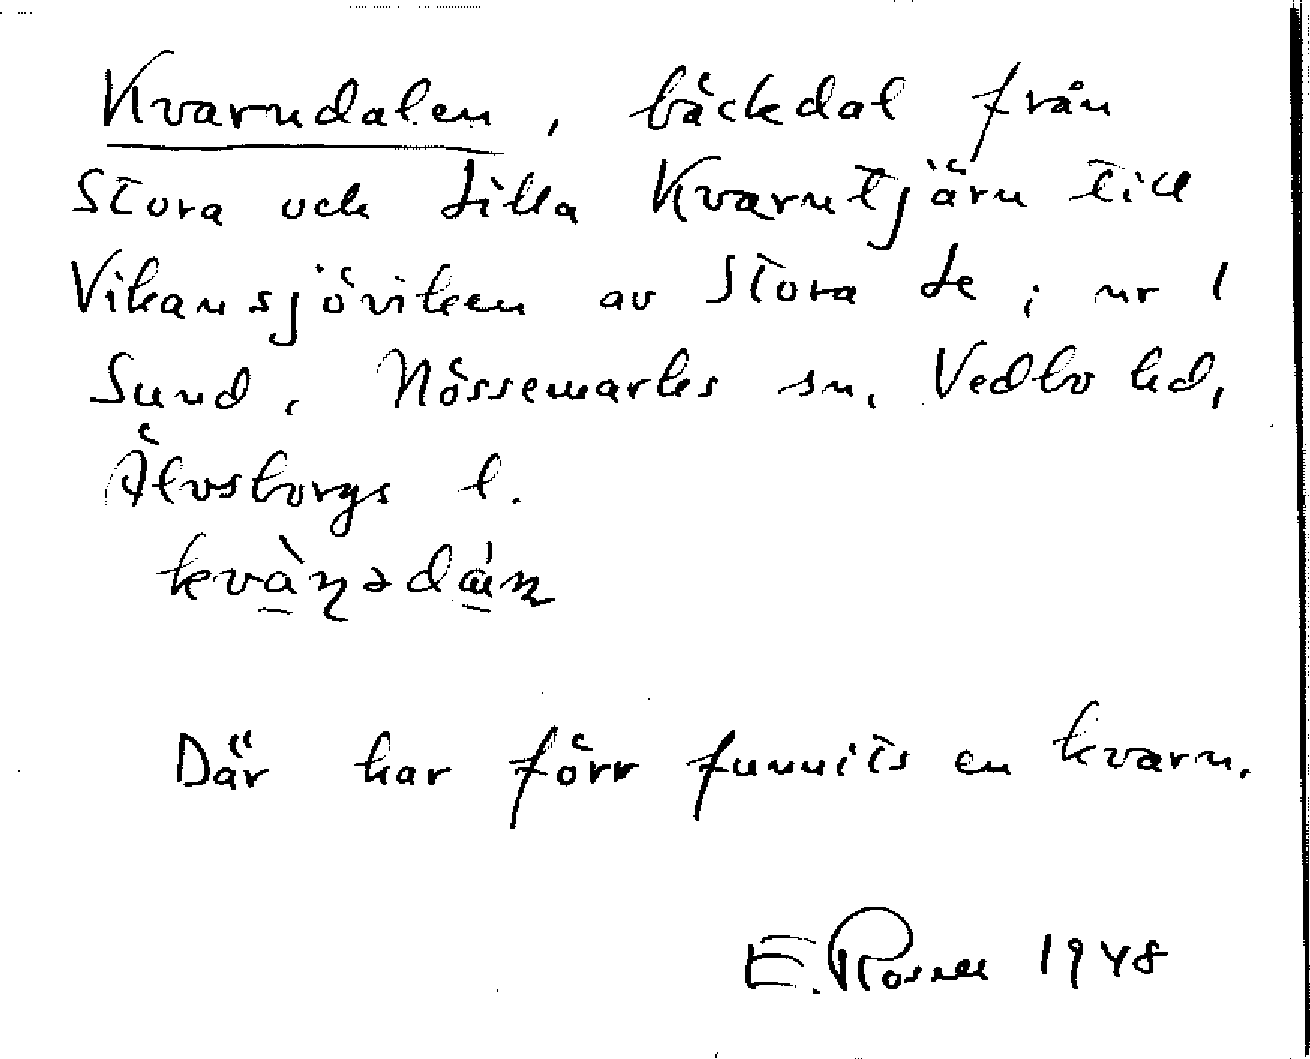 Kvarndalen, bäckdal från
Stora och Lilla Kvarntjärn till
Vikansjöviken av Stora Le, nr 1
Sund, Nössemarks sn, Vedbo hd,
Älvsborgs l.
Där har förr funnits en kvarn.
E. Rosell 1948